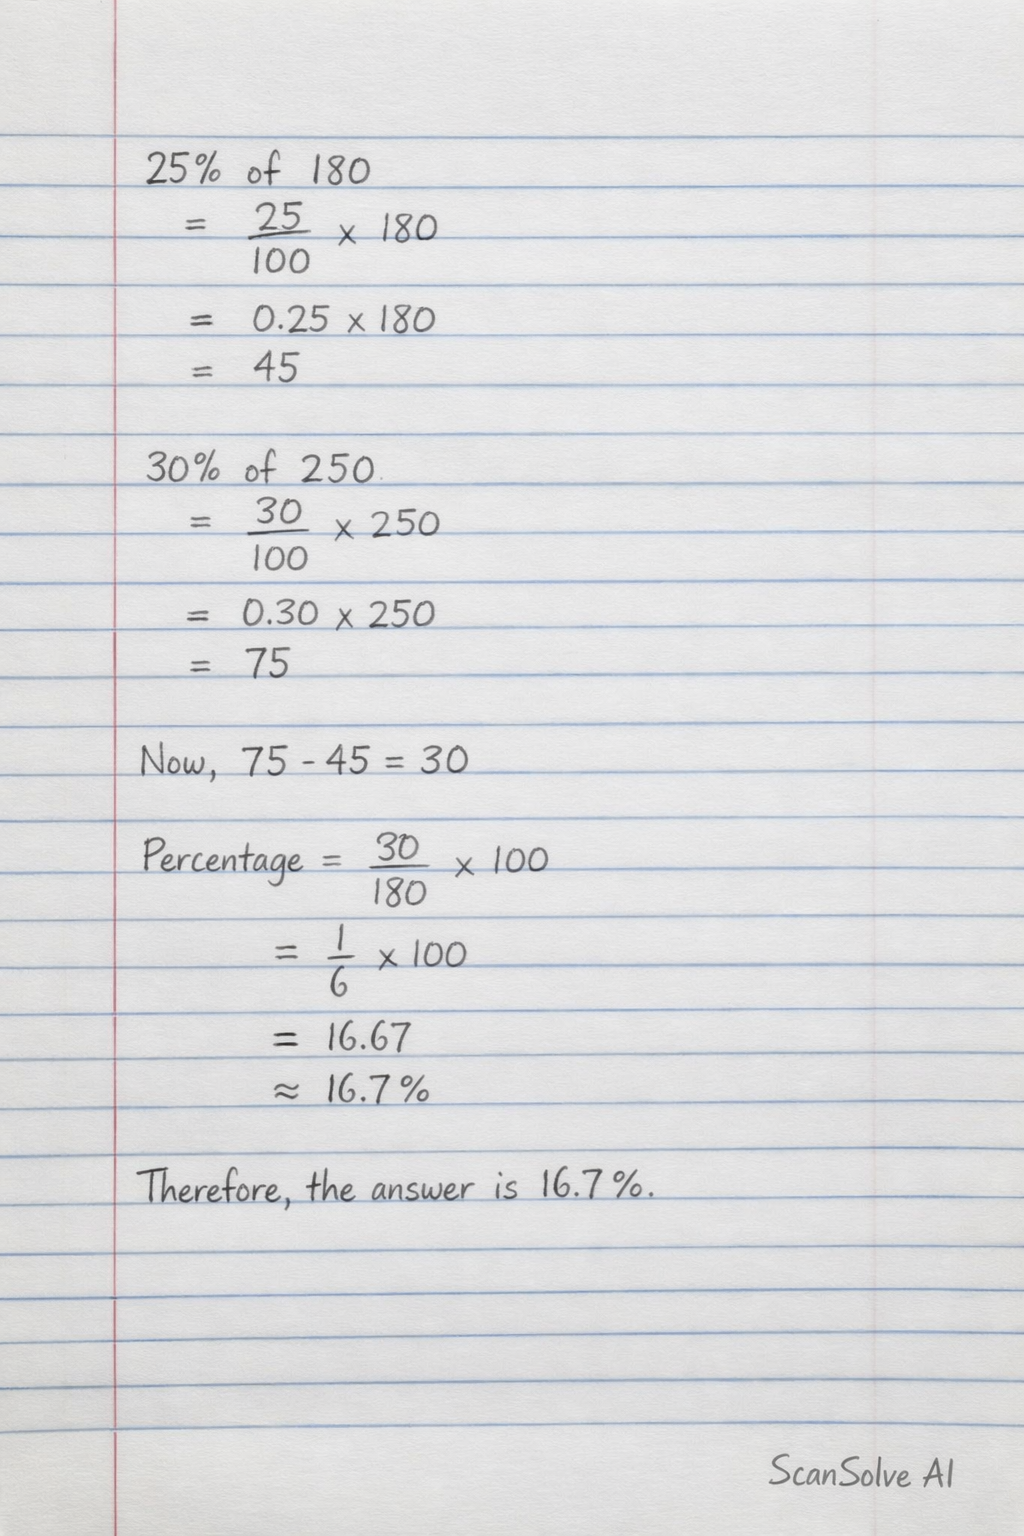 25% of 180
= 25/100 x 180
= 0.25 x 180
= 45
30% of 250
= 30/100 x 250
= 0.30 x 250
= 75
Now, 75 - 45 = 30
Percentage = 30/180 x 100
= 1/6 x 100
= 16.67
≈ 16.7%
Therefore, the answer is 16.7%.
ScanSolve AI